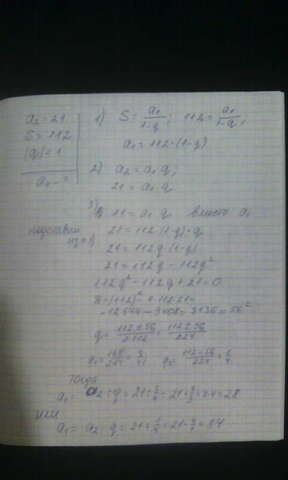 a₂ = 21
S = 112
|q| < 1
a₁ - ?
1) S = a₁/(1-q); 112 = a₁/(1-q);
a₁ = 112·(1-q)
2) a₂ = a₁ q;
21 = a₁ q
3) 21 = a₁ q, вместо a₁
подставим из 1)
21 = 112(1-q)·q
21 = 112q(1-q)
21 = 112q - 112q²
112q² - 112q + 21 = 0
= 12544 - 9408 = 3136 = 56²
q = (112±56)/(2·112) = (112±56)/224
q₂ = (112-56)/224 = 1/4
Тогда
a₁ = a₂ : q = 21 : 3/4 = 21·4/3 = 28
или
a₁ = a₂ : q = 21 : 1/4 = 84